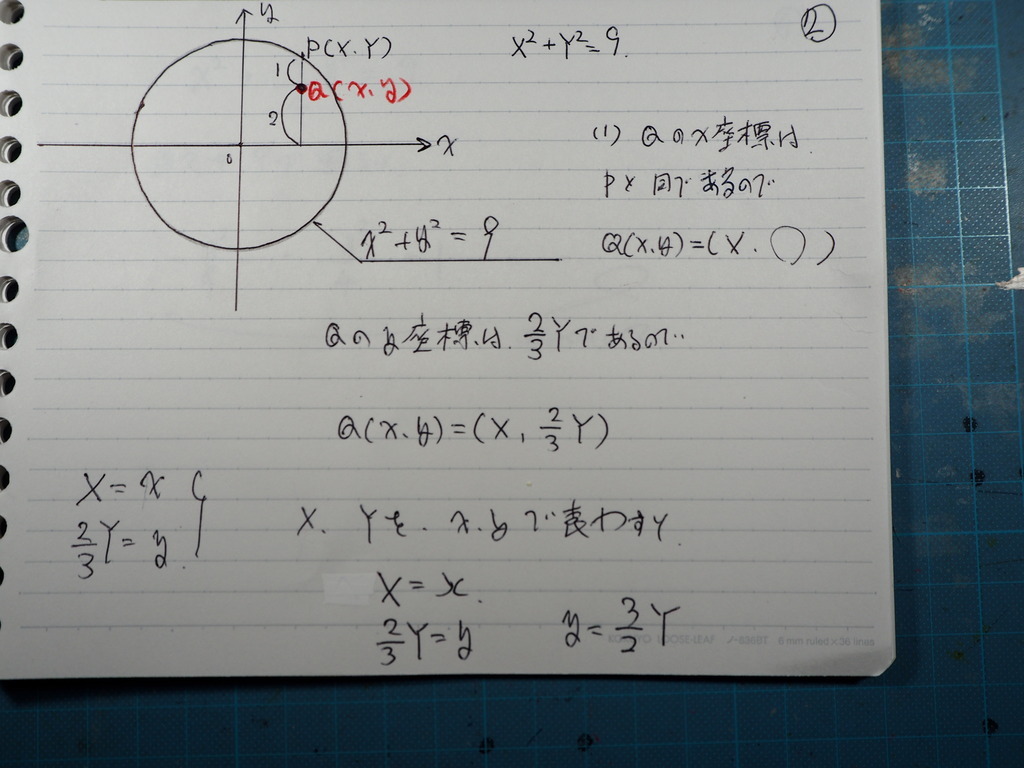 y
②
P(X.Y)
X²+Y²=9.
1
Q(x,y)
2
x
0
(1) Qのx座標は
Pと同であるので
x²+y²=9
Q(x.y)=(X.○)
Qのy座標は、2/3Yであるので..
Q(x.y)=(X, 2/3Y)
X=x
2/3Y=y.
X、Yを、x.yで表わすと
X=x.
2/3Y=y
y=3/2Y
LOOSE-LEAF ノ-836BT 8mm ruled×36 lines